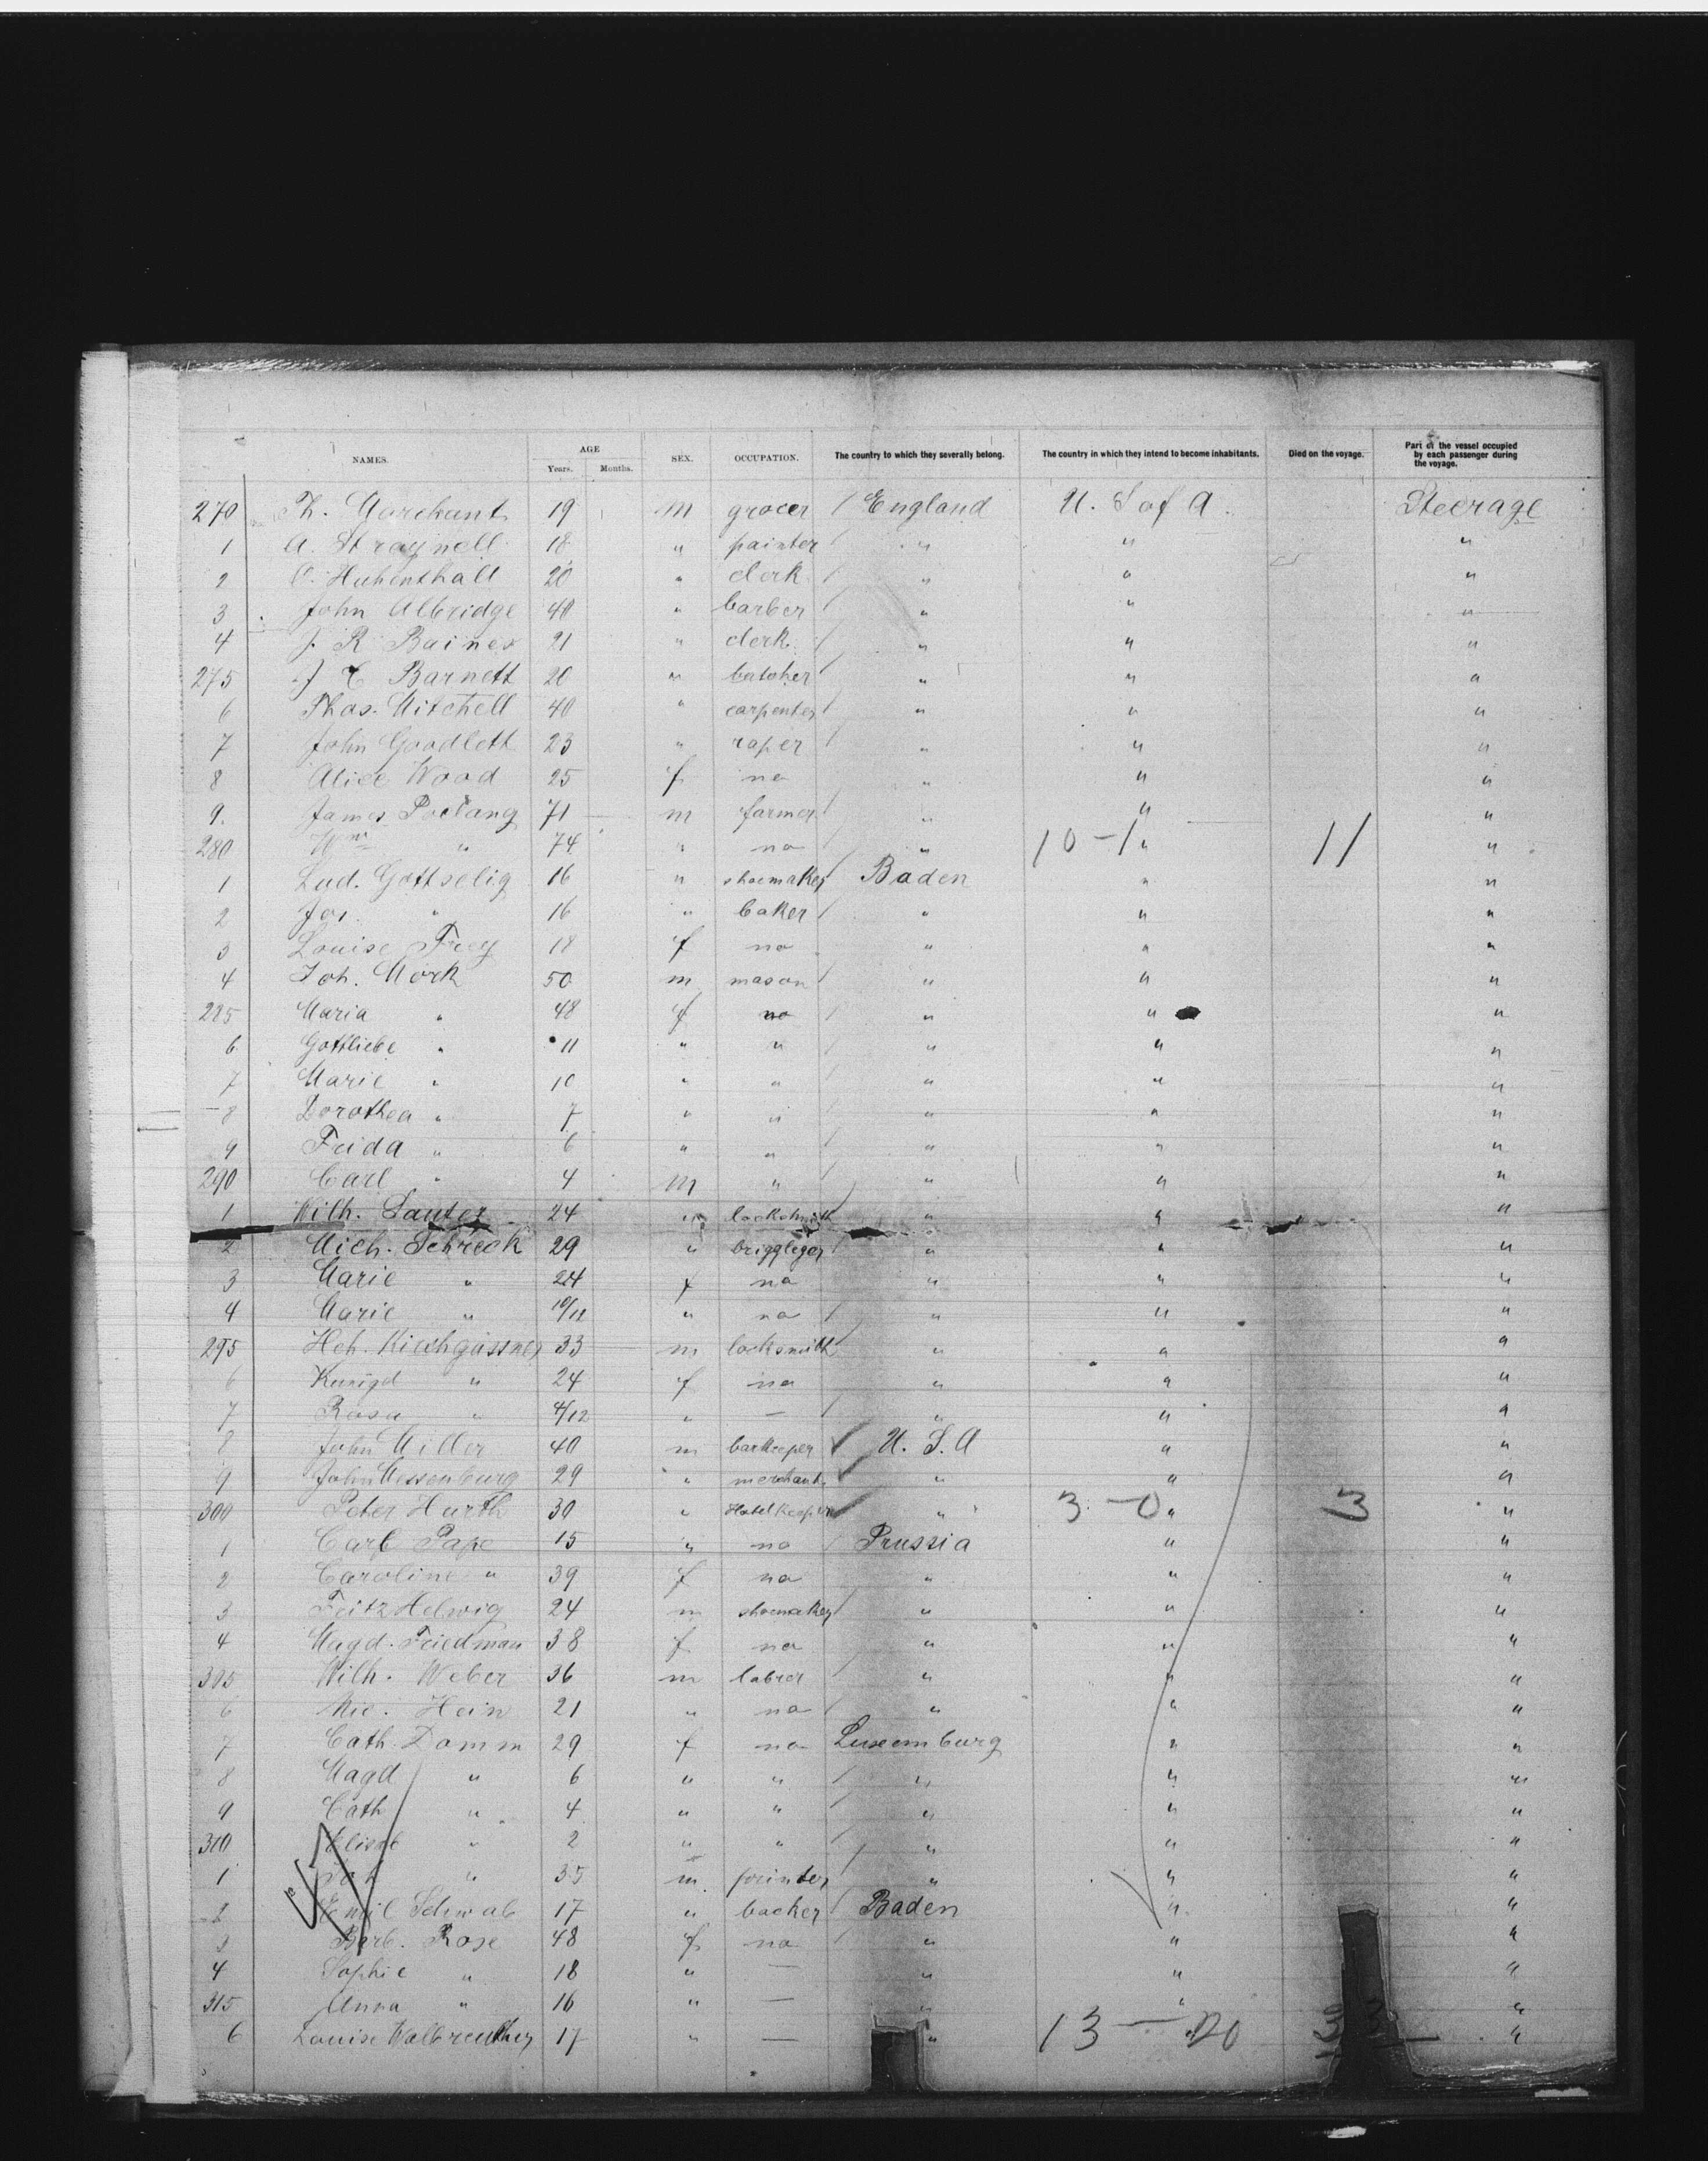 NAMES. AGE Years. Months. SEX. OCCUPATION. The country to which they severally belong. The country in which they intend to become inhabitants. Died on the voyage. Part of the vessel occupied by each passenger during the voyage.
270 Th. Marchant 19 m grocer / England U. S of A. Steerage
1 A. Straynell 18 " painter / " " "
2 Huhenthall 20 " clerk / " " "
3 John Albridge 40 " barber / " " "
4 J. R Baines 21 " clerk / " " "
275 J C Barnett 20 " butcher / " " "
6 Thos. Mitchell 40 " carpenter / " " "
7 John Goodlett 23 " raper / " " "
8 Alice Wood 25 f no " " "
9. James 71 m farmer / " " "
280 Wm " 74 " no / " 10 - 1 " 11 "
1 Lud. Gottselig 16 " shoemaker / Baden " "
2 Jos. " 16 " baker / " " "
3 Louise Frey 18 f no " " "
4 Joh. Mörk 50 m mason / " " "
285 Maria " 48 f no / " " "
6 Gottliebe " 11 " " / " " "
7 Marie " 10 " " / " " "
8 Dorothea " 7 " " " " "
9 Frida " 6 " " / " " "
290 Carl " 4 m " / " " "
1 Wilh. Sauter 24 " lockshmith " " "
2 Mich. Schreck 29 " briggleger / " " "
3 Marie " 24 f no " " "
4 Marie " 10/12 " no / " " "
295 Hch. Kirchgässner 33 m locksmith / " " "
6 Kunigd " 24 f no " " "
7 Rosa " 4/12 " — / " " "
8 John Miller 40 m barkeeper / U. S. A " "
9 John Messenburg 29 " merchant / " " "
300 Peter Hurth 30 " Hotelkeeper / " 3 - 0 " 3 "
1 Carl Pape 15 " no / Prussia " "
2 Caroline " 39 f no / " " "
3 Fritz Helwig 24 m shoemaker / " " "
4 Magd. Friedman 38 f no " " "
305 Wilh. Weber 36 m labrer / " " "
6 Nic. Hein 21 " no / " " "
7 Cath. Damm 29 f no Luxemburg " "
8 Magd " 6 " " / " " "
9 Cath " 4 " " / " " "
310 " 2 " " / " " "
1 " 35 m printer " " "
2 Emil Schwab 17 " backer / Baden " "
3 Barb. Rose 48 f no / " " "
4 Sophie " 18 " — " " "
315 Anna " 16 " — " " "
6 Louise Walbreuther 17 " — " 13 — 20 "